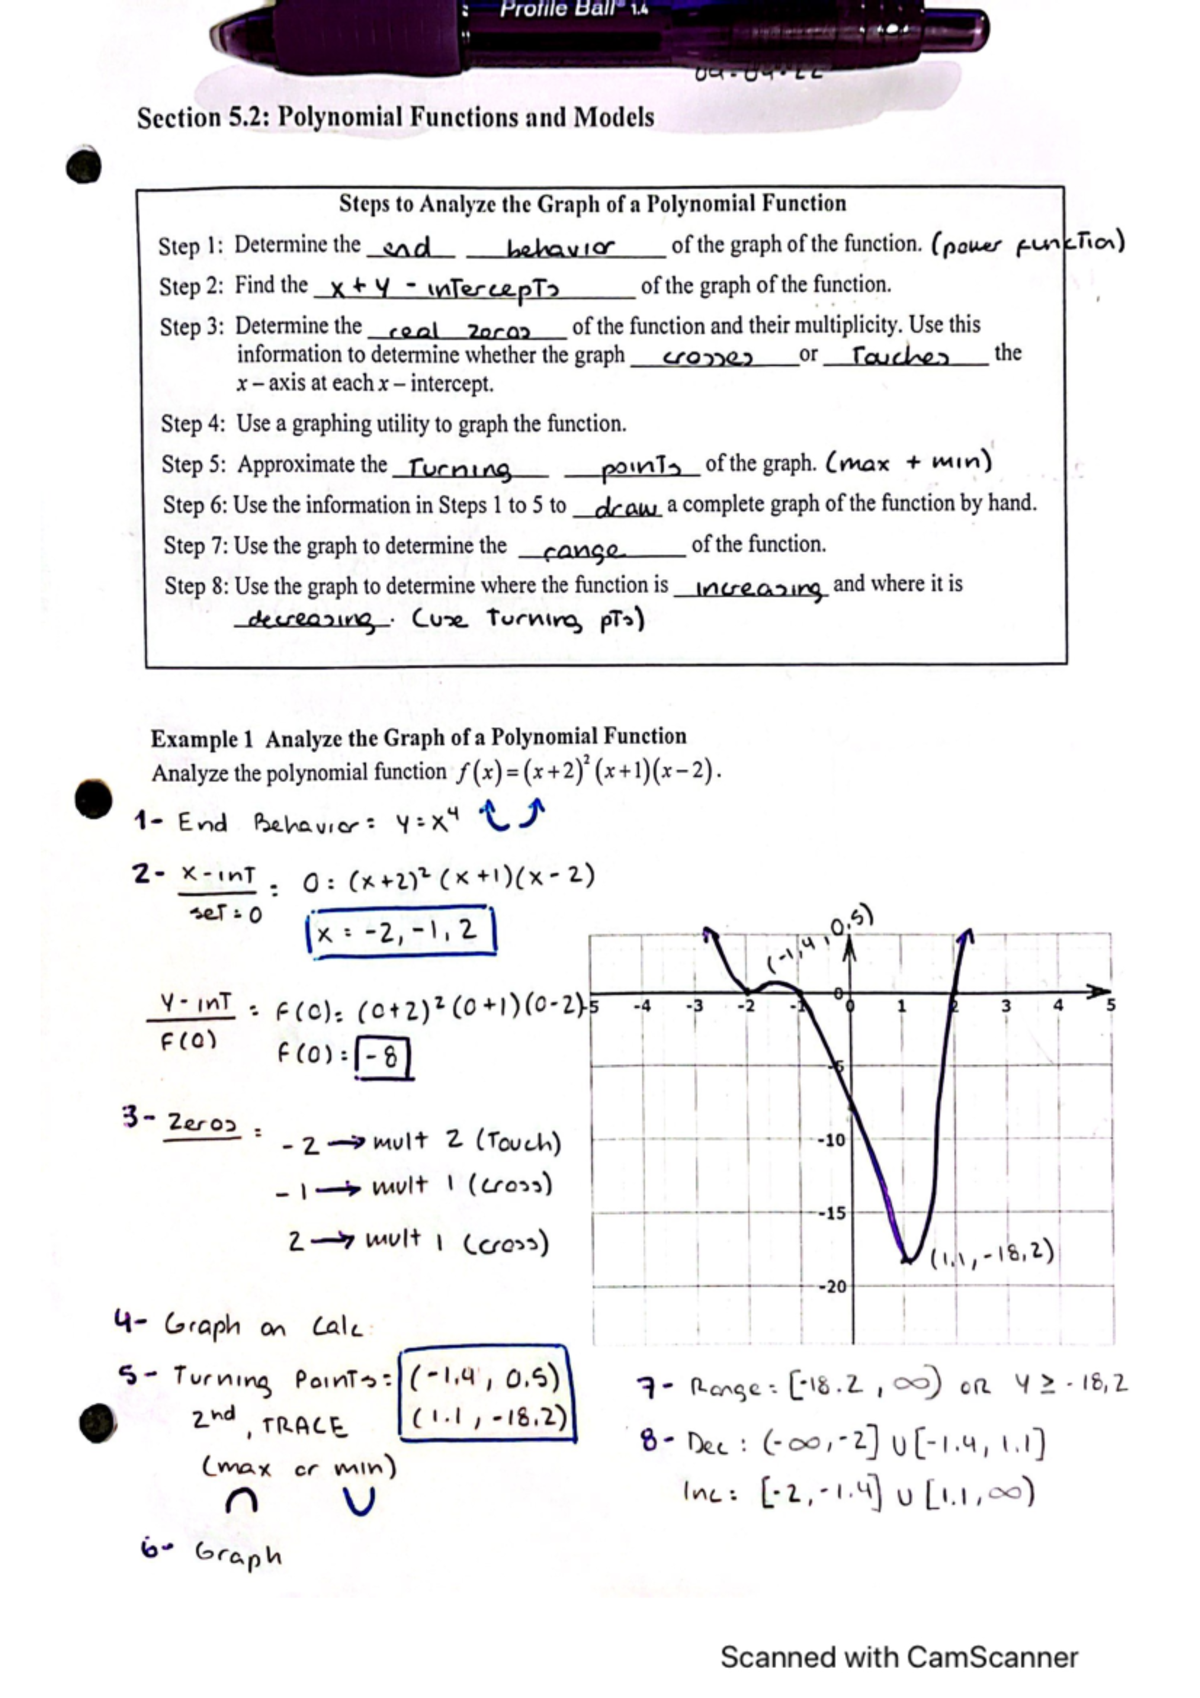 Profile Ball 1.4
04-04-22
Section 5.2: Polynomial Functions and Models
Steps to Analyze the Graph of a Polynomial Function
Step 1: Determine the end behavior of the graph of the function. (power function)
Step 2: Find the x + y - intercepts of the graph of the function.
Step 3: Determine the real zeros of the function and their multiplicity. Use this
information to determine whether the graph crosses or Touches the
x – axis at each x – intercept.
Step 4: Use a graphing utility to graph the function.
Step 5: Approximate the Turning points of the graph. (max + min)
Step 6: Use the information in Steps 1 to 5 to draw a complete graph of the function by hand.
Step 7: Use the graph to determine the range of the function.
Step 8: Use the graph to determine where the function is increasing and where it is
decreasing. (use Turning pts)
Example 1 Analyze the Graph of a Polynomial Function
Analyze the polynomial function f(x)=(x+2)²(x+1)(x−2).
1- End Behavior: y=x⁴
2- x-int : 0 = (x+2)²(x+1)(x-2)
set = 0
x = -2, -1, 2
y-int = f(0) = (0+2)²(0+1)(0-2)
f(0)
f(0) = -8
3- Zeros =
-2 → mult 2 (Touch)
-1 → mult 1 (cross)
2 → mult 1 (cross)
4- Graph on Calc
5- Turning Points: (-1.4, 0.5)
(1.1, -18.2)
2nd, TRACE
(max or min)
6- Graph
(-1.4, 0.5)
-5 -4 -3 -2 -1 0 1 2 3 4 5
0
-5
-10
-15
-20
(1.1, -18.2)
7- Range: [-18.2, ∞) OR y ≥ -18.2
8- Dec: (-∞, -2] U [-1.4, 1.1]
Inc: [-2, -1.4] U [1.1, ∞)
Scanned with CamScanner